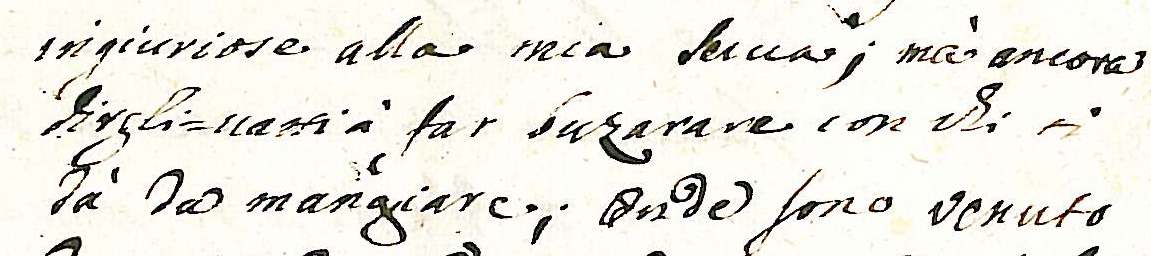 ingiuriose alla mia serua; mà ancora
dirgli = uatti à far buzarare con chi ti
dà da mangiare; onde sono venuto